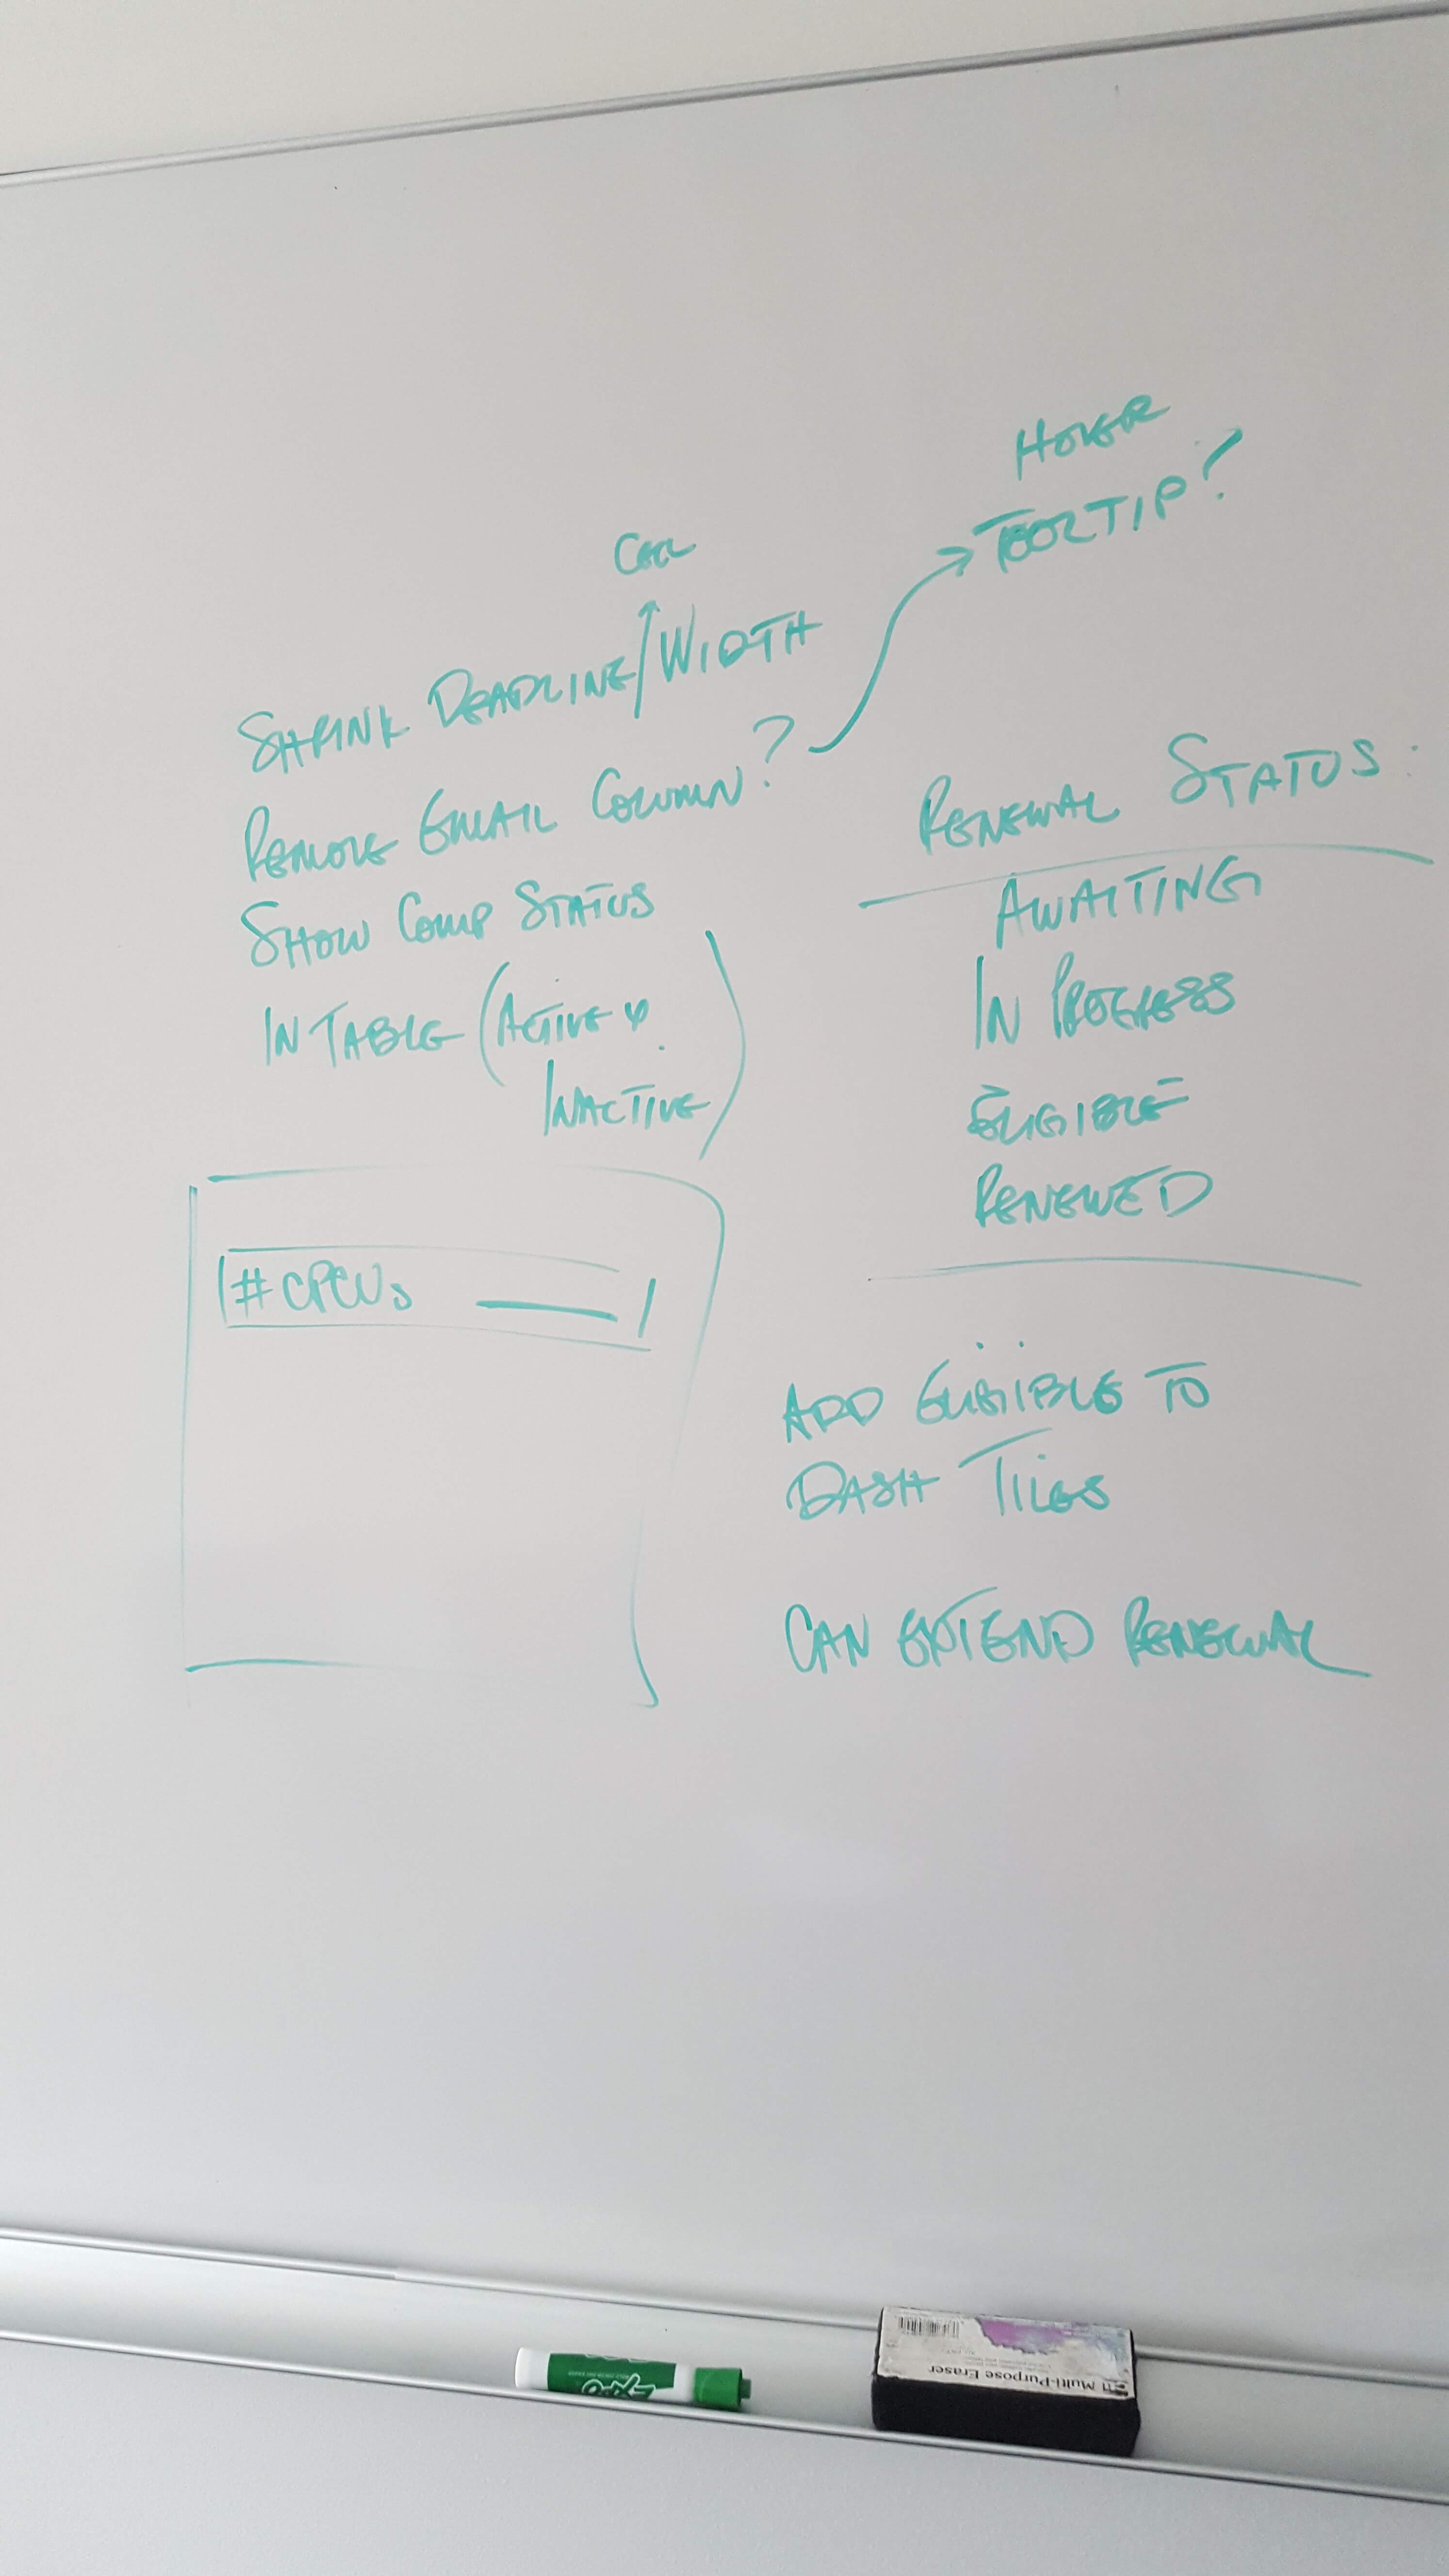 HOVER
TOOLTIP?
CELL
SHRINK DEADLINE/WIDTH
REMOVE EMAIL COLUMN?
SHOW COMP STATUS
IN TABLE (ACTIVE &
INACTIVE)
#CPCUs
RENEWAL STATUS:
AWAITING
IN PROGRESS
ELIGIBLE
RENEWED
ADD ELIGIBLE TO
DASH TILES
CAN EXTEND RENEWAL
EXPO
Multi-Purpose Eraser